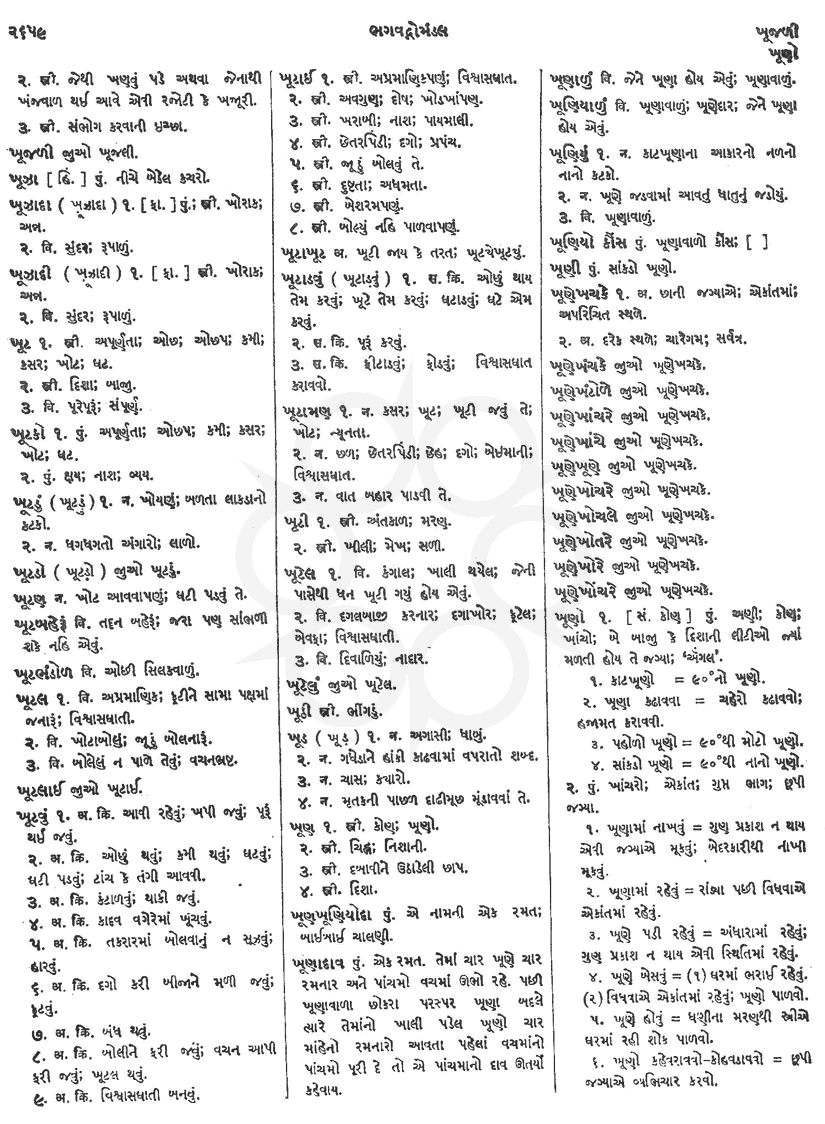 ૨૬૫૯
ભગવદ્ગોમંડલ
ખૂજળી
ખૂણો
૨. સ્ત્રી. જેથી ખણવું પડે અથવા જેનાથી
ખંજવાળ થઈ આવે એવી રજોટી કે ખજૂરી.
૩. સ્ત્રી. સંભોગ કરવાની ઇચ્છા.
ખૂજળી જુઓ ખૂજલી.
ખૂઝા [ હિં. ] પું. નીચે બેઠેલ કચરો.
ખૂઝાદા ( ખૂઝાદા ) ૧. [ ફા. ] પું.; સ્ત્રી. ખોરાક;
અન્ન.
૨. વિ. સુંદર; રૂપાળું.
ખૂઝાદી ( ખૂઝાદી ) ૧. [ ફા. ] સ્ત્રી. ખોરાક;
અન્ન.
૨. વિ. સુંદર; રૂપાળું.
ખૂટ ૧. સ્ત્રી. અપૂર્ણતા; ઓછ; ઓછપ; કમી;
કસર; ખોટ; ઘટ.
૨. સ્ત્રી. દિશા; બાજુ.
૩. વિ. પૂરેપૂરું; સંપૂર્ણ.
ખૂટકો ૧. પું. અપૂર્ણતા; ઓછપ; કમી; કસર;
ખોટ; ઘટ.
૨. પું. ક્ષય; નાશ; વ્યય.
ખૂટડું ( ખૂટડું ) ૧. ન. ખોયણું; બળતા લાકડાનો
કટકો.
૨. ન. ધગધગતો અંગારો; લાળો.
ખૂટડો ( ખૂટડો ) જુઓ ખૂટડું.
ખૂટણ ન. ખોટ આવવાપણું; ઘટી પડવું તે.
ખૂટબહેરૂં વિ. તદ્દન બહેરૂં; જરા પણ સાંભળી
શકે નહિ એવું.
ખૂટભંડોળ વિ. ઓછી સિલકવાળું.
ખૂટલ ૧. વિ. અપ્રમાણિક; ફૂટીને સામા પક્ષમાં
જનારૂં; વિશ્વાસઘાતી.
૨. વિ. ખોટાબોલું; જૂઠું બોલનારૂં.
૩. વિ. બોલેલું ન પાળે તેવું; વચનભ્રષ્ટ.
ખૂટલાઈ જુઓ ખૂટાઈ.
ખૂટવું ૧. અ. ક્રિ. આવી રહેવું; ખપી જવું; પૂરૂં
થઈ જવું.
૨. અ. ક્રિ. ઓછું થવું; કમી થવું; ઘટવું;
ઘટી પડવું; ટાંચ કે તંગી આવવી.
૩. અ. ક્રિ. કંટાળવું; થાકી જવું.
૪. અ. ક્રિ. કાદવ વગેરેમાં ખૂંચવું.
૫. અ. ક્રિ. તકરારમાં બોલવાનું ન સૂઝવું;
હારવું.
૬. અ. ક્રિ. દગો કરી બીજાને મળી જવું;
ફૂટવું.
૭. અ. ક્રિ. બંધ થવું.
૮. અ. ક્રિ. બોલીને ફરી જવું; વચન આપી
ફરી જવું; ખૂટલ થવું.
૯. અ. ક્રિ. વિશ્વાસઘાતી બનવું.
ખૂટાઈ ૧. સ્ત્રી. અપ્રમાણિકપણું; વિશ્વાસઘાત.
૨. સ્ત્રી. અવગુણ; દોષ; ખોડખાંપણ.
૩. સ્ત્રી. ખરાબી; નાશ; પાયમાલી.
૪. સ્ત્રી. છેતરપિંડી; દગો; પ્રપંચ.
૫. સ્ત્રી. જૂઠું બોલવું તે.
૬. સ્ત્રી. દુષ્ટતા; અધમતા.
૭. સ્ત્રી. બેશરમપણું.
૮. સ્ત્રી. બોલ્યું નહિ પાળવાપણું.
ખૂટાખૂટ અ. ખૂટી જાય કે તરત; ખૂટ્યેખૂટ્યું.
ખૂટાડવું ( ખૂટાડવું ) ૧. સ. ક્રિ. ઓછું થાય
તેમ કરવું; ખૂટે તેમ કરવું; ઘટાડવું; ઘટે એમ
કરવું.
૨. સ. ક્રિ. પૂરૂં કરવું.
૩. સ. ક્રિ. ફીટાડવું; ફોડવું; વિશ્વાસઘાત
કરાવવો.
ખૂટામણ ૧. ન. કસર; ખૂટ; ખૂટી જવું તે;
ખોટ; ન્યૂનતા.
૨. ન. છળ; છેતરપિંડી; છેહ; દગો; બેઈમાની;
વિશ્વાસઘાત.
૩. ન. વાત બહાર પાડવી તે.
ખૂટી ૧. સ્ત્રી. અંતકાળ; મરણ.
૨. સ્ત્રી. ખીલી; મેખ; સળી.
ખૂટેલ ૧. વિ. કંગાલ; ખાલી થયેલ; જેની
પાસેથી ધન ખૂટી ગયું હોય એવું.
૨. વિ. દગલબાજી કરનાર; દગાખોર; ફૂટેલ;
બેવફા; વિશ્વાસઘાતી.
૩. વિ. દિવાળિયું; નાદાર.
ખૂટેલું જુઓ ખૂટેલ.
ખૂડી સ્ત્રી. ભીંગડું.
ખૂડ ( ખૂડ ) ૧. ન. અગાસી; ધાબું.
૨. ન. ગધેડાને હાંકી કાઢવામાં વપરાતો શબ્દ.
૩. ન. ચાસ; કયારો.
૪. ન. મૃતકની પાછળ દાઢીમૂછ મુંડાવવાં તે.
ખૂણ ૧. સ્ત્રી. કોણ; ખૂણો.
૨. સ્ત્રી. ચિહ્ન; નિશાની.
૩. સ્ત્રી. દબાવીને ઉઠાડેલી છાપ.
૪. સ્ત્રી. દિશા.
ખૂણખૂણિયોદા પું. એ નામની એક રમત;
બાઈબાઈ ચાલણી.
ખૂણાદાવ પું. એક રમત. તેમાં ચાર ખૂણે ચાર
રમનાર અને પાંચમો વચમાં ઊભો રહે. પછી
ખૂણાવાળા છોકરા પરસ્પર ખૂણા બદલે
ત્યારે તેમાંનો ખાલી પડેલ ખૂણો ચાર
માંહેનો રમનારો આવતા પહેલાં વચમાંનો
પાંચમો પૂરી દે તો એ પાંચમાનો દાવ ઊતર્યો
કહેવાય.
ખૂણાળું વિ. જેને ખૂણા હોય એવું; ખૂણાવાળું.
ખૂણિયાળું વિ. ખૂણાવાળું; ખૂણેદાર; જેને ખૂણા
હોય એવું.
ખૂણિયું ૧. ન. કાટખૂણાના આકારનો નળનો
નાનો કટકો.
૨. ન. ખૂણે જડવામાં આવતું ધાતુનું જડોયું.
૩. વિ. ખૂણાવાળું.
ખૂણિયો કૌંસ પું. ખૂણાવાળો કૌંસ; [ ]
ખૂણી પું. સાંકડો ખૂણો.
ખૂણેખચકે ૧. અ. છાની જગ્યાએ; એકાંતમાં;
અપરિચિત સ્થળે.
૨. અ. દરેક સ્થળે; ચારેગમ; સર્વત્ર.
ખૂણેખંચકે જુઓ ખૂણેખચકે.
ખૂણેખંટોળે જુઓ ખૂણેખચકે.
ખૂણેખાંચરે જુઓ ખૂણેખચકે.
ખૂણેખાંચે જુઓ ખૂણેખચકે.
ખૂણેખૂણે જુઓ ખૂણેખચકે.
ખૂણેખોચરે જુઓ ખૂણેખચકે.
ખૂણેખોચલે જુઓ ખૂણેખચકે.
ખૂણેખોતરે જુઓ ખૂણેખચકે.
ખૂણેખોરે જુઓ ખૂણેખચકે.
ખૂણેખોંચરે જુઓ ખૂણેખચકે.
ખૂણો ૧. [ સં. કોણ ] પું. અણી; કોણ;
ખાંચો; બે બાજુ કે દિશાની લીટીઓ જ્યાં
મળતી હોય તે જગ્યા; ‘અંગલ’.
૧. કાટખૂણો = ૯૦°નો ખૂણો.
૨. ખૂણા કઢાવવા = ચહેરો કઢાવવો;
હજામત કરાવવી.
૩. પહોળો ખૂણો = ૯૦°થી મોટો ખૂણો.
૪. સાંકડો ખૂણો = ૯૦°થી નાનો ખૂણો.
૨. પું. ખાંચરો; એકાંત; ગુપ્ત ભાગ; છૂપી
જગ્યા.
૧. ખૂણામાં નાખવું = ગુણ પ્રકાશ ન થાય
એવી જગ્યાએ મૂકવું; બેદરકારીથી નાખી
મૂકવું.
૨. ખૂણામાં રહેવું = રાંડ્યા પછી વિધવાએ
એકાંતમાં રહેવું.
૩. ખૂણે પડી રહેવું = અંધારામાં રહેવું;
ગુણ પ્રકાશ ન થાય એવી સ્થિતિમાં રહેવું.
૪. ખૂણે બેસવું = (૧) ઘરમાં ભરાઈ રહેવું.
(૨) વિધવાએ એકાંતમાં રહેવું; ખૂણો પાળવો.
૫. ખૂણે હોવું = ધણીના મરણથી સ્ત્રીએ
ઘરમાં રહી શોક પાળવો.
૬. ખૂણો કહેવરાવવો-કોહવડાવવો = છૂપી
જગ્યાએ વ્યભિચાર કરવો.